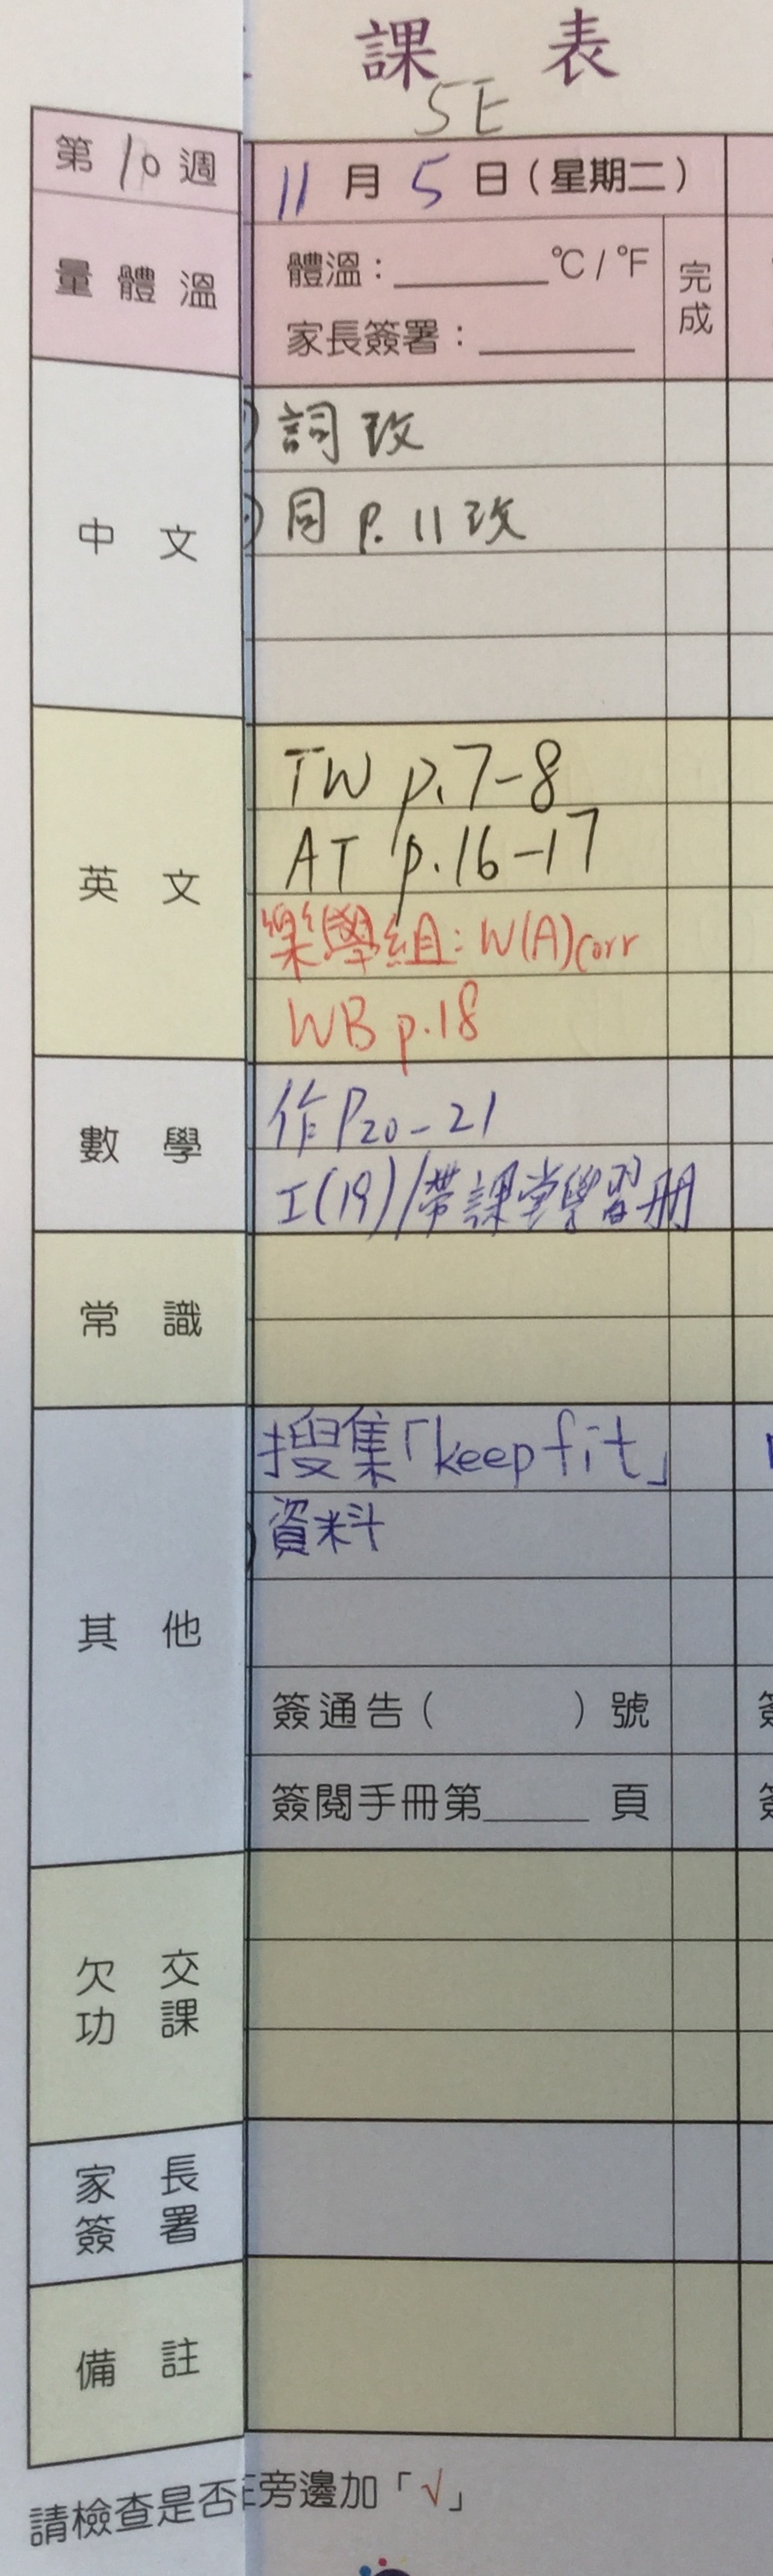 課 表
5E
第 10 週
11 月 5 日（星期二）
量 體 溫
體溫：______°C / °F
家長簽署：______
完成
中 文
詞 改
同 p. 11 改
英 文
TW p.7-8
AT p.16-17
樂學組：W(A)corr
WB p.18
數 學
作 P20-21
工(19)/帶課堂學習册
常 識
其 他
搜集「keep fit」
資料
簽通告（ ）號
簽閱手冊第______頁
欠 交
功 課
家 長
簽 署
備 註
請檢查是否
旁邊加「√」